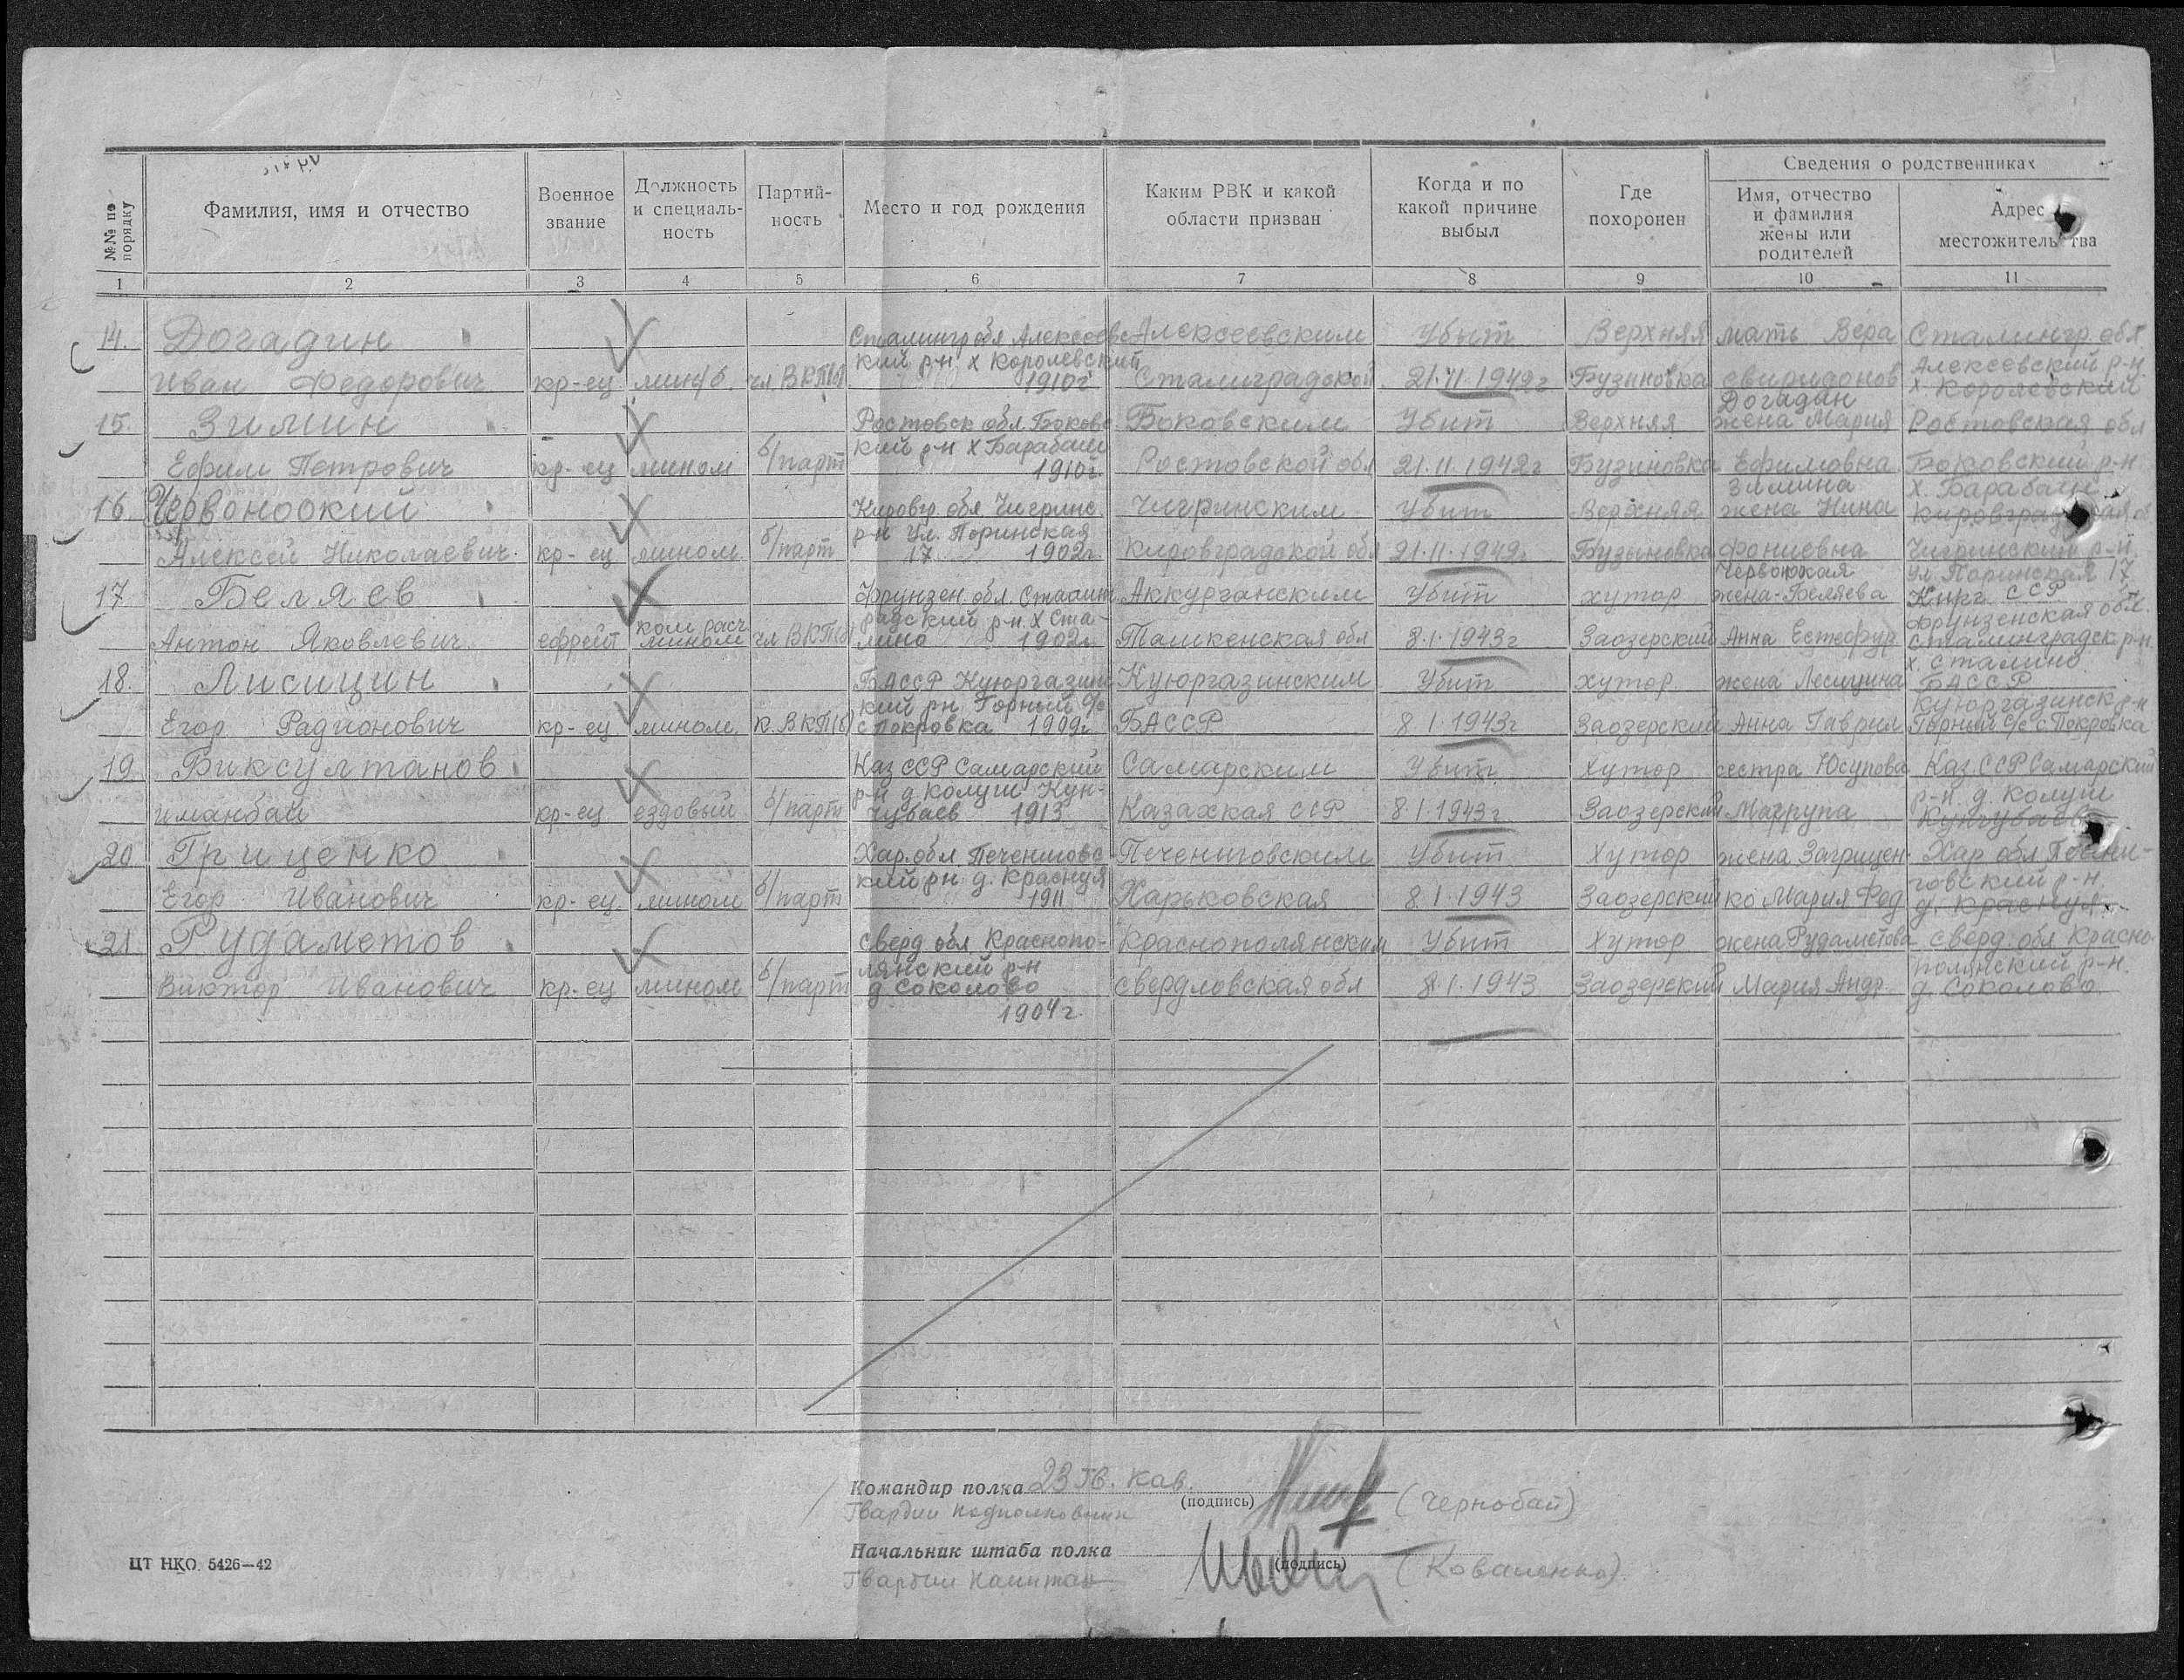 Сведения о родственниках
№№ по порядку
Фамилия, имя и отчество
Военное звание
Должность и специаль-ность
Партий-ность
Место и год рождения
Каким РВК и какой области призван
Когда и по какой причине выбыл
Где похоронен
Имя, отчество и фамилия жены или родителей
Адрес местожительства
1 2 3 4 5 6 7 8 9 10 11
14. Догадин Сталингр обл Алексеевс- Алексеевским Убит Верхняя мать Вера Сталингр обл
кий р-н х Королевский Алексеевский р-н
Иван Федорович кр-ец мин/б. чл ВКП(б) 1910г Сталинградской 21.11.1942г Бузиновка свиридонов х Королевский
Догадин
15. Зимин Ростовск обл Боковс Боковским Убит Верхняя жена Мария Ростовская обл
кий р-н х Барабаш
Ефим Петрович кр-ец мином б/парт 1910г. Ростовской обл 21.11.1942г Бузиновка Ефимовна Боковский р-н
Зимина х. Барабаш
16. Червоноокий Кировгр. обл. Чигринс. Чигринским Убит Верхняя жена Нина
р-н Ул. Поринская
Алексей Николаевич. кр-ец мином. б/парт 17 1902г. Кировградской обл 21.11.1942г Бузиновка Фониевна Чигринский р-н.
Червоокая ул Поринская 17
17. Беляев Фрунзен. обл. Сталинг Аккурганским Убит хутор жена-Беляева Кирг. ССР
ком расч радский р-н. х Ста- Фрунзенская обл.
Антон Яковлевич. ефрейт мином чл ВКП(б) лино 1902г. Ташкенская обл 8.1.1943г Заозерский Анна Сталинградск. р-н.
х. Сталино.
18. Лисицин БАССР Куюргазинс Куюргазинским Убит хутор жена Лесицина БАССР
кий рн Горный с/с Куюргазинск р-н
Егор Радионович кр-ец мином. к. ВКП(б) с Покровка 1909г. БАССР 8.1.1943г Заозерский Анна Гаврил Горный с/с с Покровка
19 Биксултанов Каз ССР Самарский Самарским Убит хутор сестра Юсупова Каз. ССР Самарский
р-н д Колуш Кун- р-н. д. Колуш
иманбай кр-ец ездовый б/парт чубаев 1913 Казахская ССР 8.1.1943г Заозерский Магрупа
20 Гриценко Хар. обл Печениговс- Печениговским Убит Хутор жена Загрицен- Хар обл Печени-
кий рн д. Краснуя говский р-н.
Егор Иванович кр-ец. мином б/парт 1911 Харьковская 8.1.1943 Заозерский ко Мария Фед д. Краснуя.
21. Рудаметов сверд. обл Краснопо- Краснополянским Убит Хутор жена Рудаметова сверд. обл Красно-
лянский р-н полянский р-н.
Виктор Иванович кр-ец мином б/парт д Соколово свердловская обл 8.1.1943 Заозерский Мария Андр. д. Соколово
1904г.
Командир полка 23 Гв. Кав. (подпись) (Чернобай)
Гвардии подполковник
Начальник штаба полка (подпись) (Коваленко).
Гвардии Капитан
ЦТ НКО. 5426—42